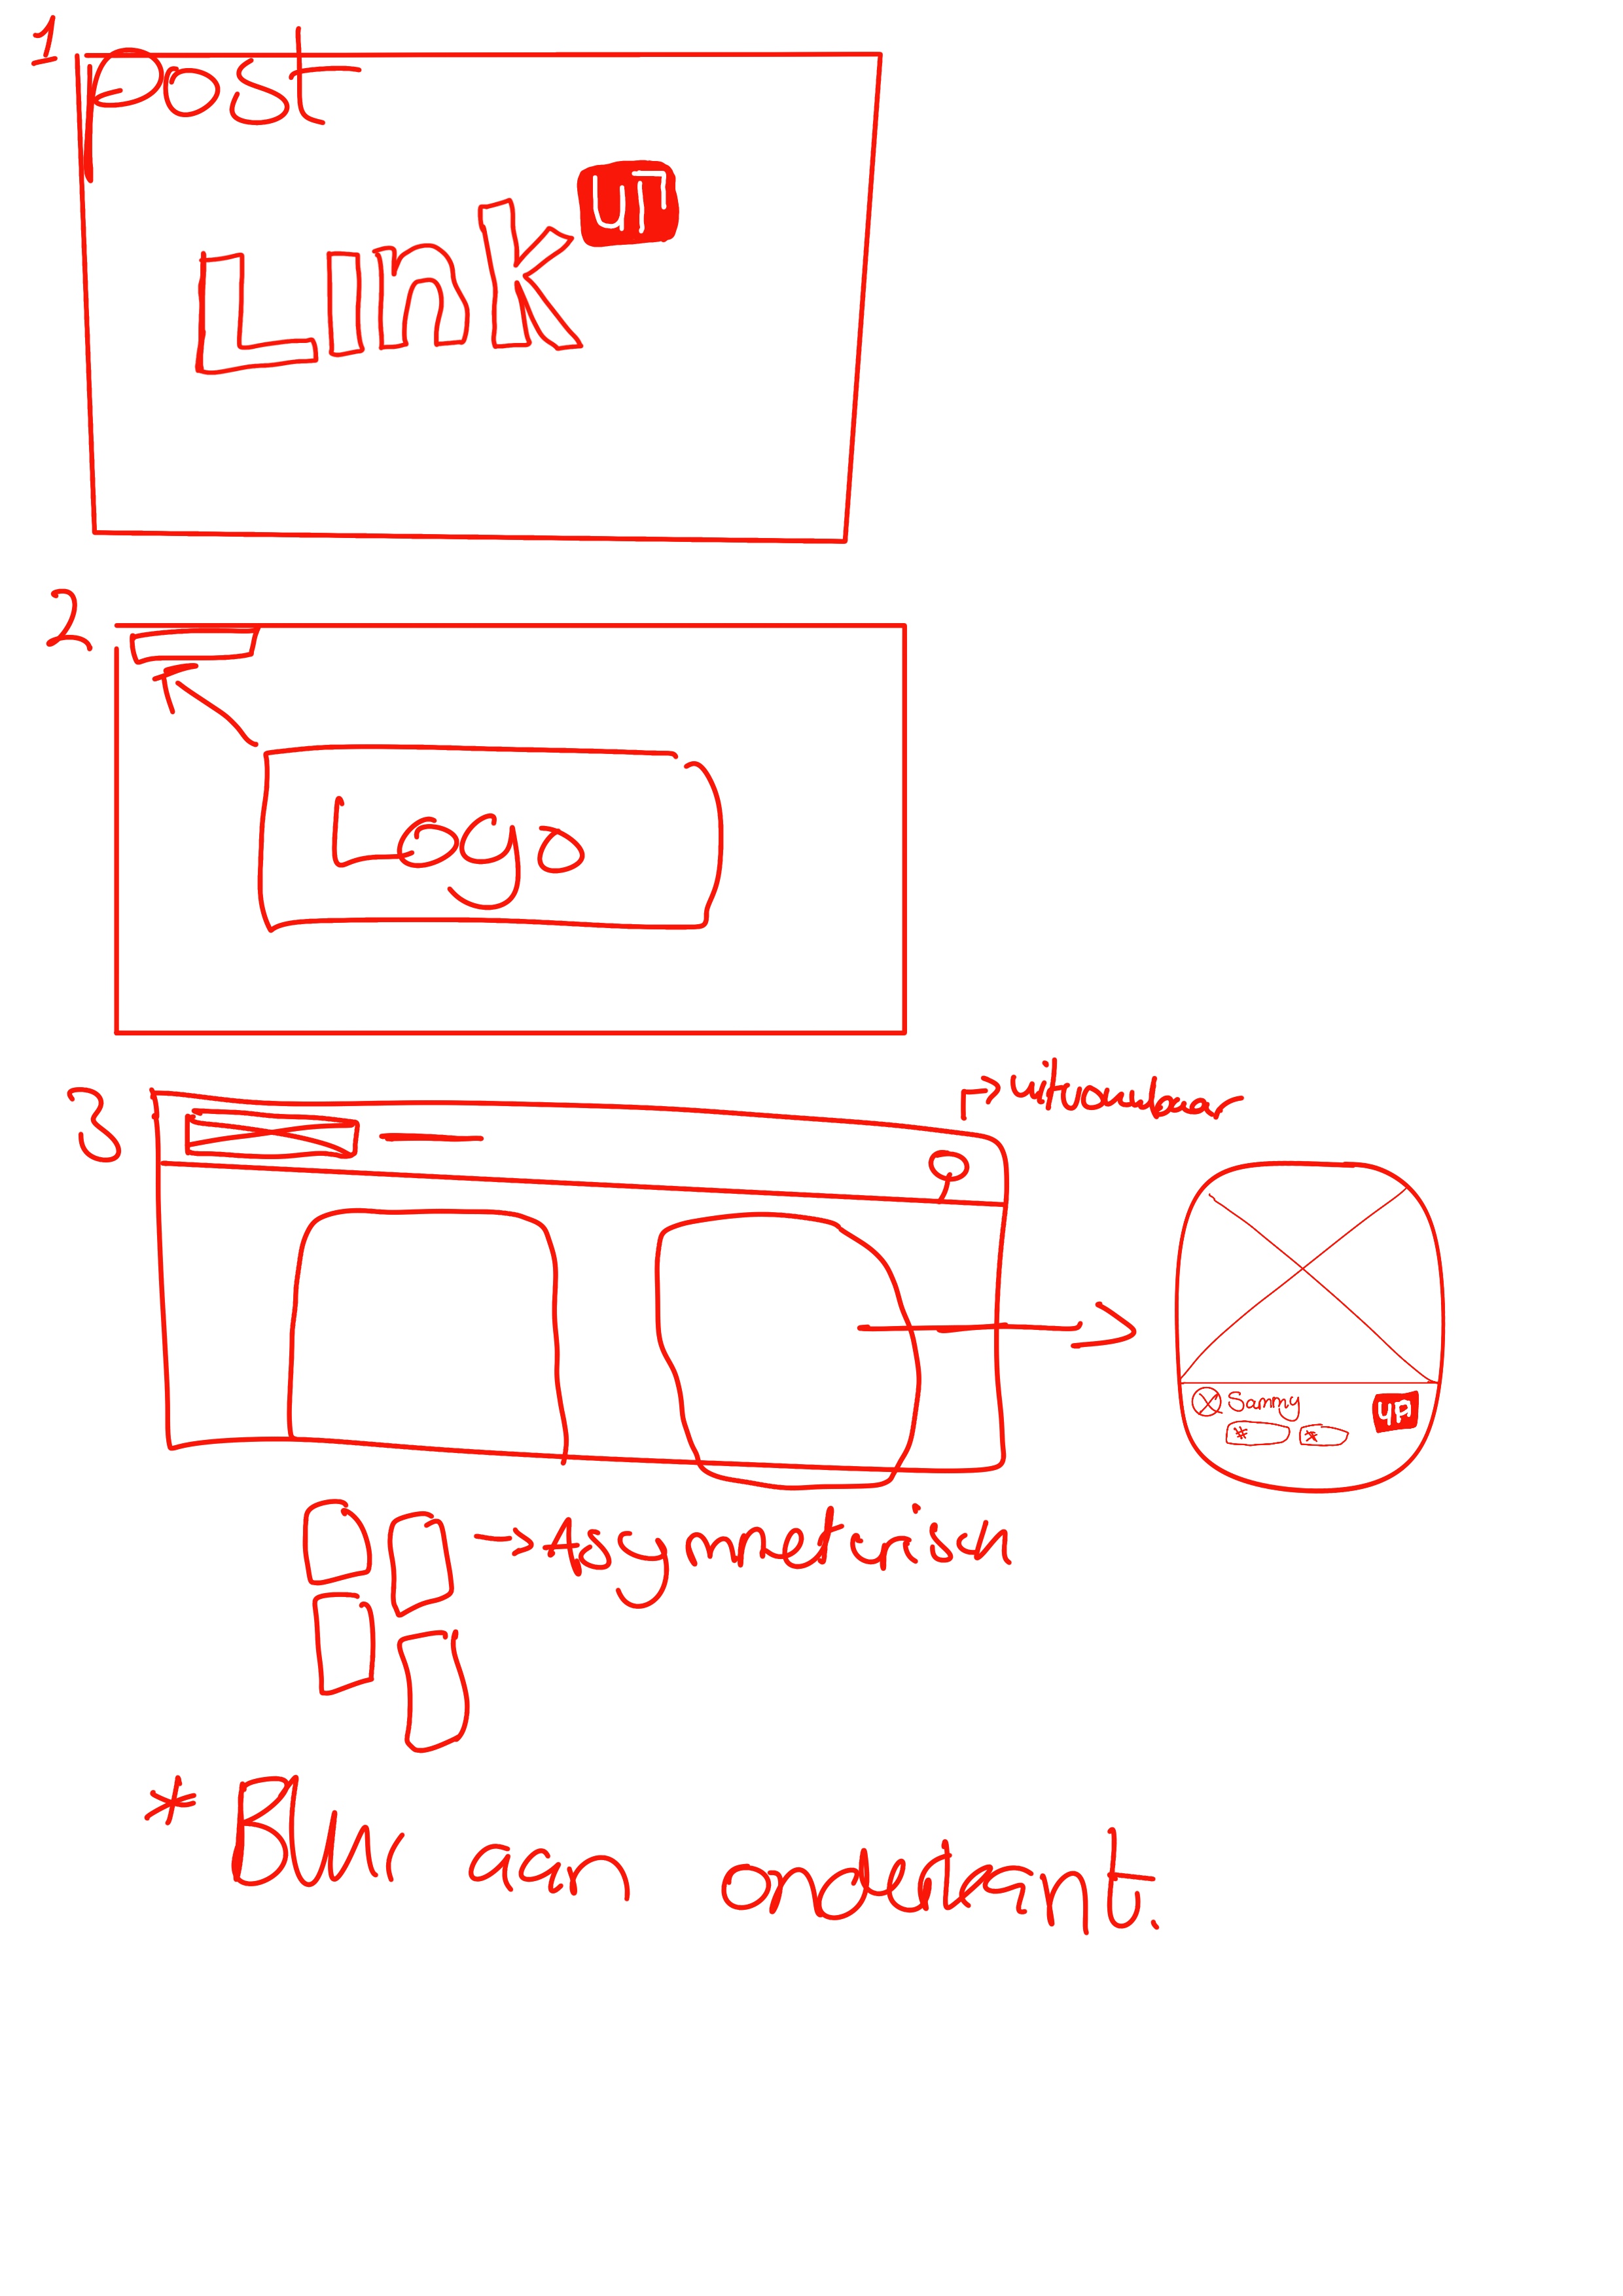 1
post
Link
2
Logo
3
uitvouwbaar
Sammy
# *
Assymetrisch
* Blur aan onderkant.